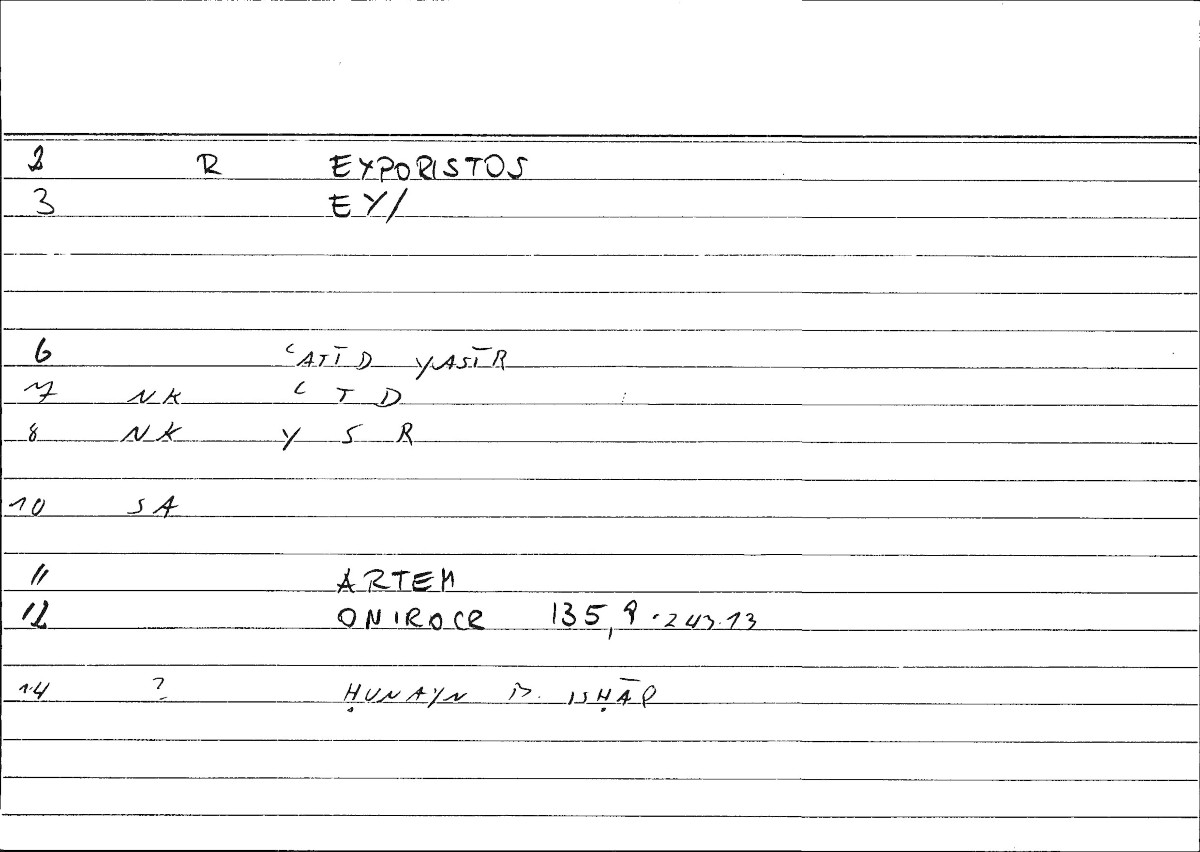 2 R EYPORISTOS
3 EY/
6 ʿATĪD YASĪR
7 NK ʿ T D
8 NK Y S R
10 SA
11 ARTEM
12 ONIROCR 135,9 · 243.13
14 ? ḤUNAYN B. ISḤĀQ